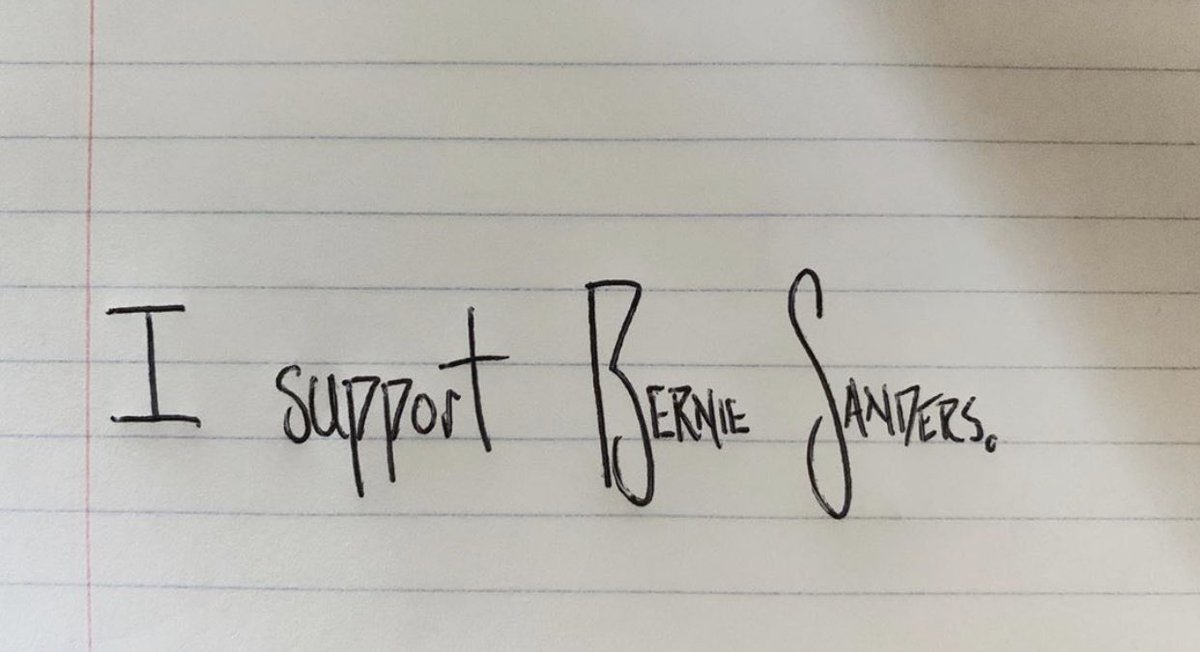 I support BERNIE SANDERS.